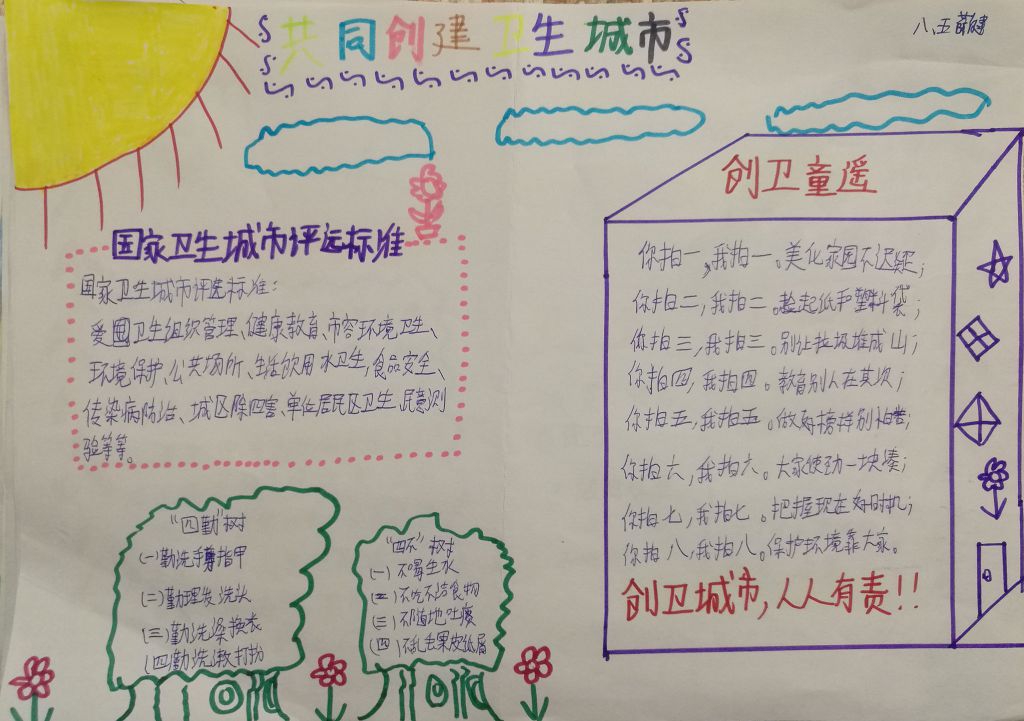 共同创建卫生城市
八、五 薛健
国家卫生城市评选标准
国家卫生城市评选标准：
爱国卫生组织管理、健康教育、市容环境卫生、
环境保护、公共场所、生活饮用水卫生，食品安全、
传染病防治、城区除四害、单位居民区卫生、民意测
验等等。
"四勤"树
(一)勤洗手剪指甲
(二)勤理发洗头
(三)勤洗澡换衣
(四)勤洗漱打扮
"四不"树
(一)不喝生水
(二)不吃不洁食物
(三)不随地吐痰
(四)不乱丢果皮纸屑
创卫童遥
你拍一，我拍一。美化家园不迟疑；
你拍二，我拍二。捡起纸和塑料袋；
你拍三，我拍三。别让垃圾堆成山；
你拍四，我拍四。教育别人在其次；
你拍五，我拍五。做好榜样别怕苦；
你拍六，我拍六。大家使劲一块凑；
你拍七，我拍七。把握现在好时机；
你拍八，我拍八。保护环境靠大家。
创卫城市，人人有责！！